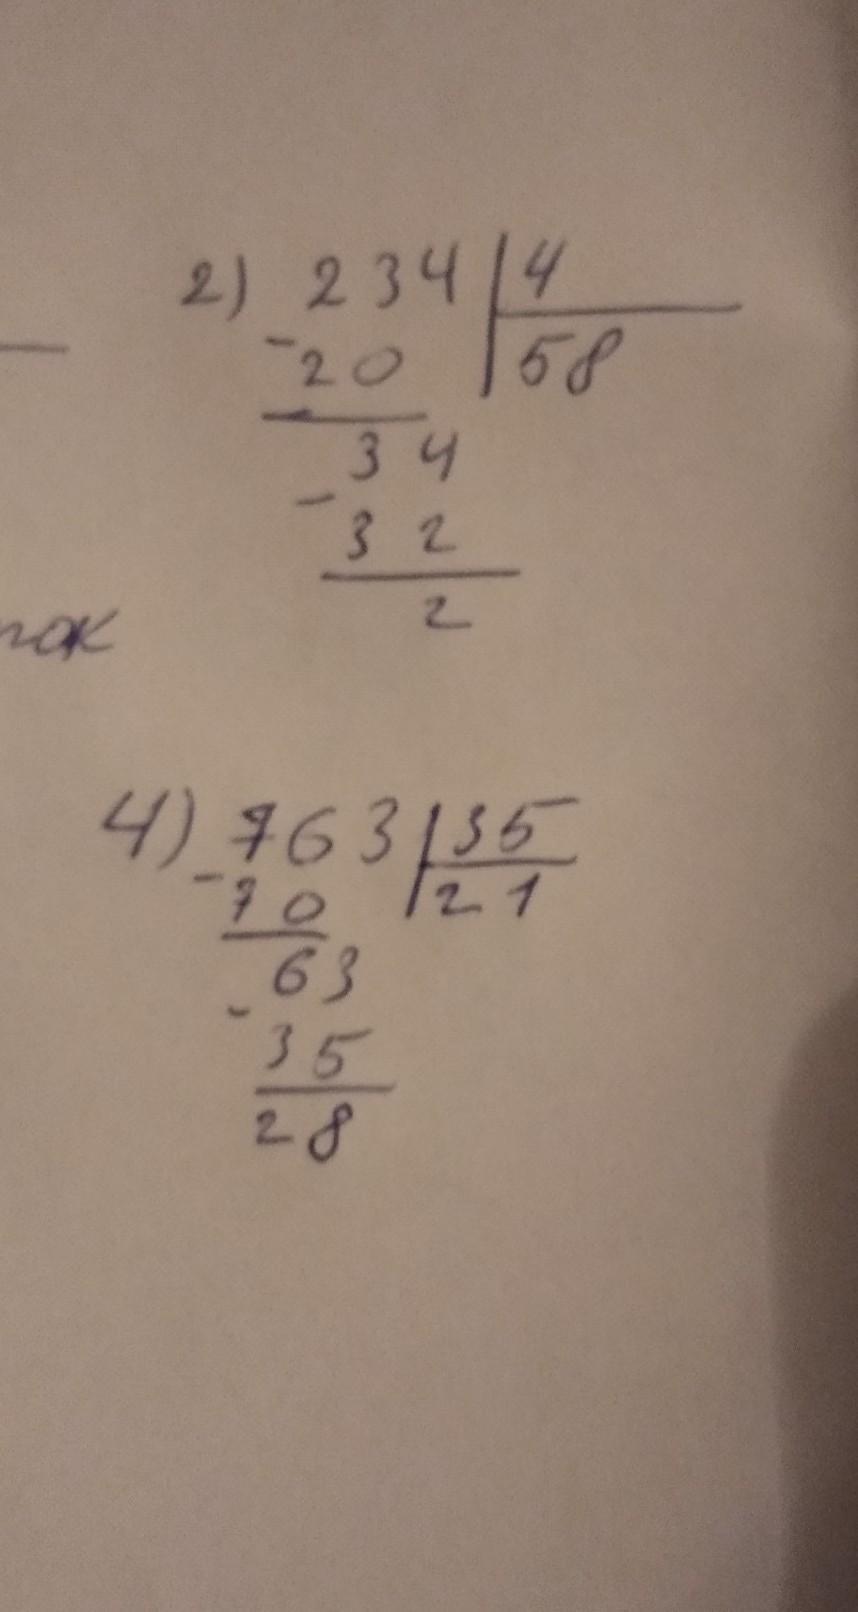 2) 234 | 4
- 20 | 58
34
- 32
2
4) 763 | 35
- 70 | 21
63
- 35
28